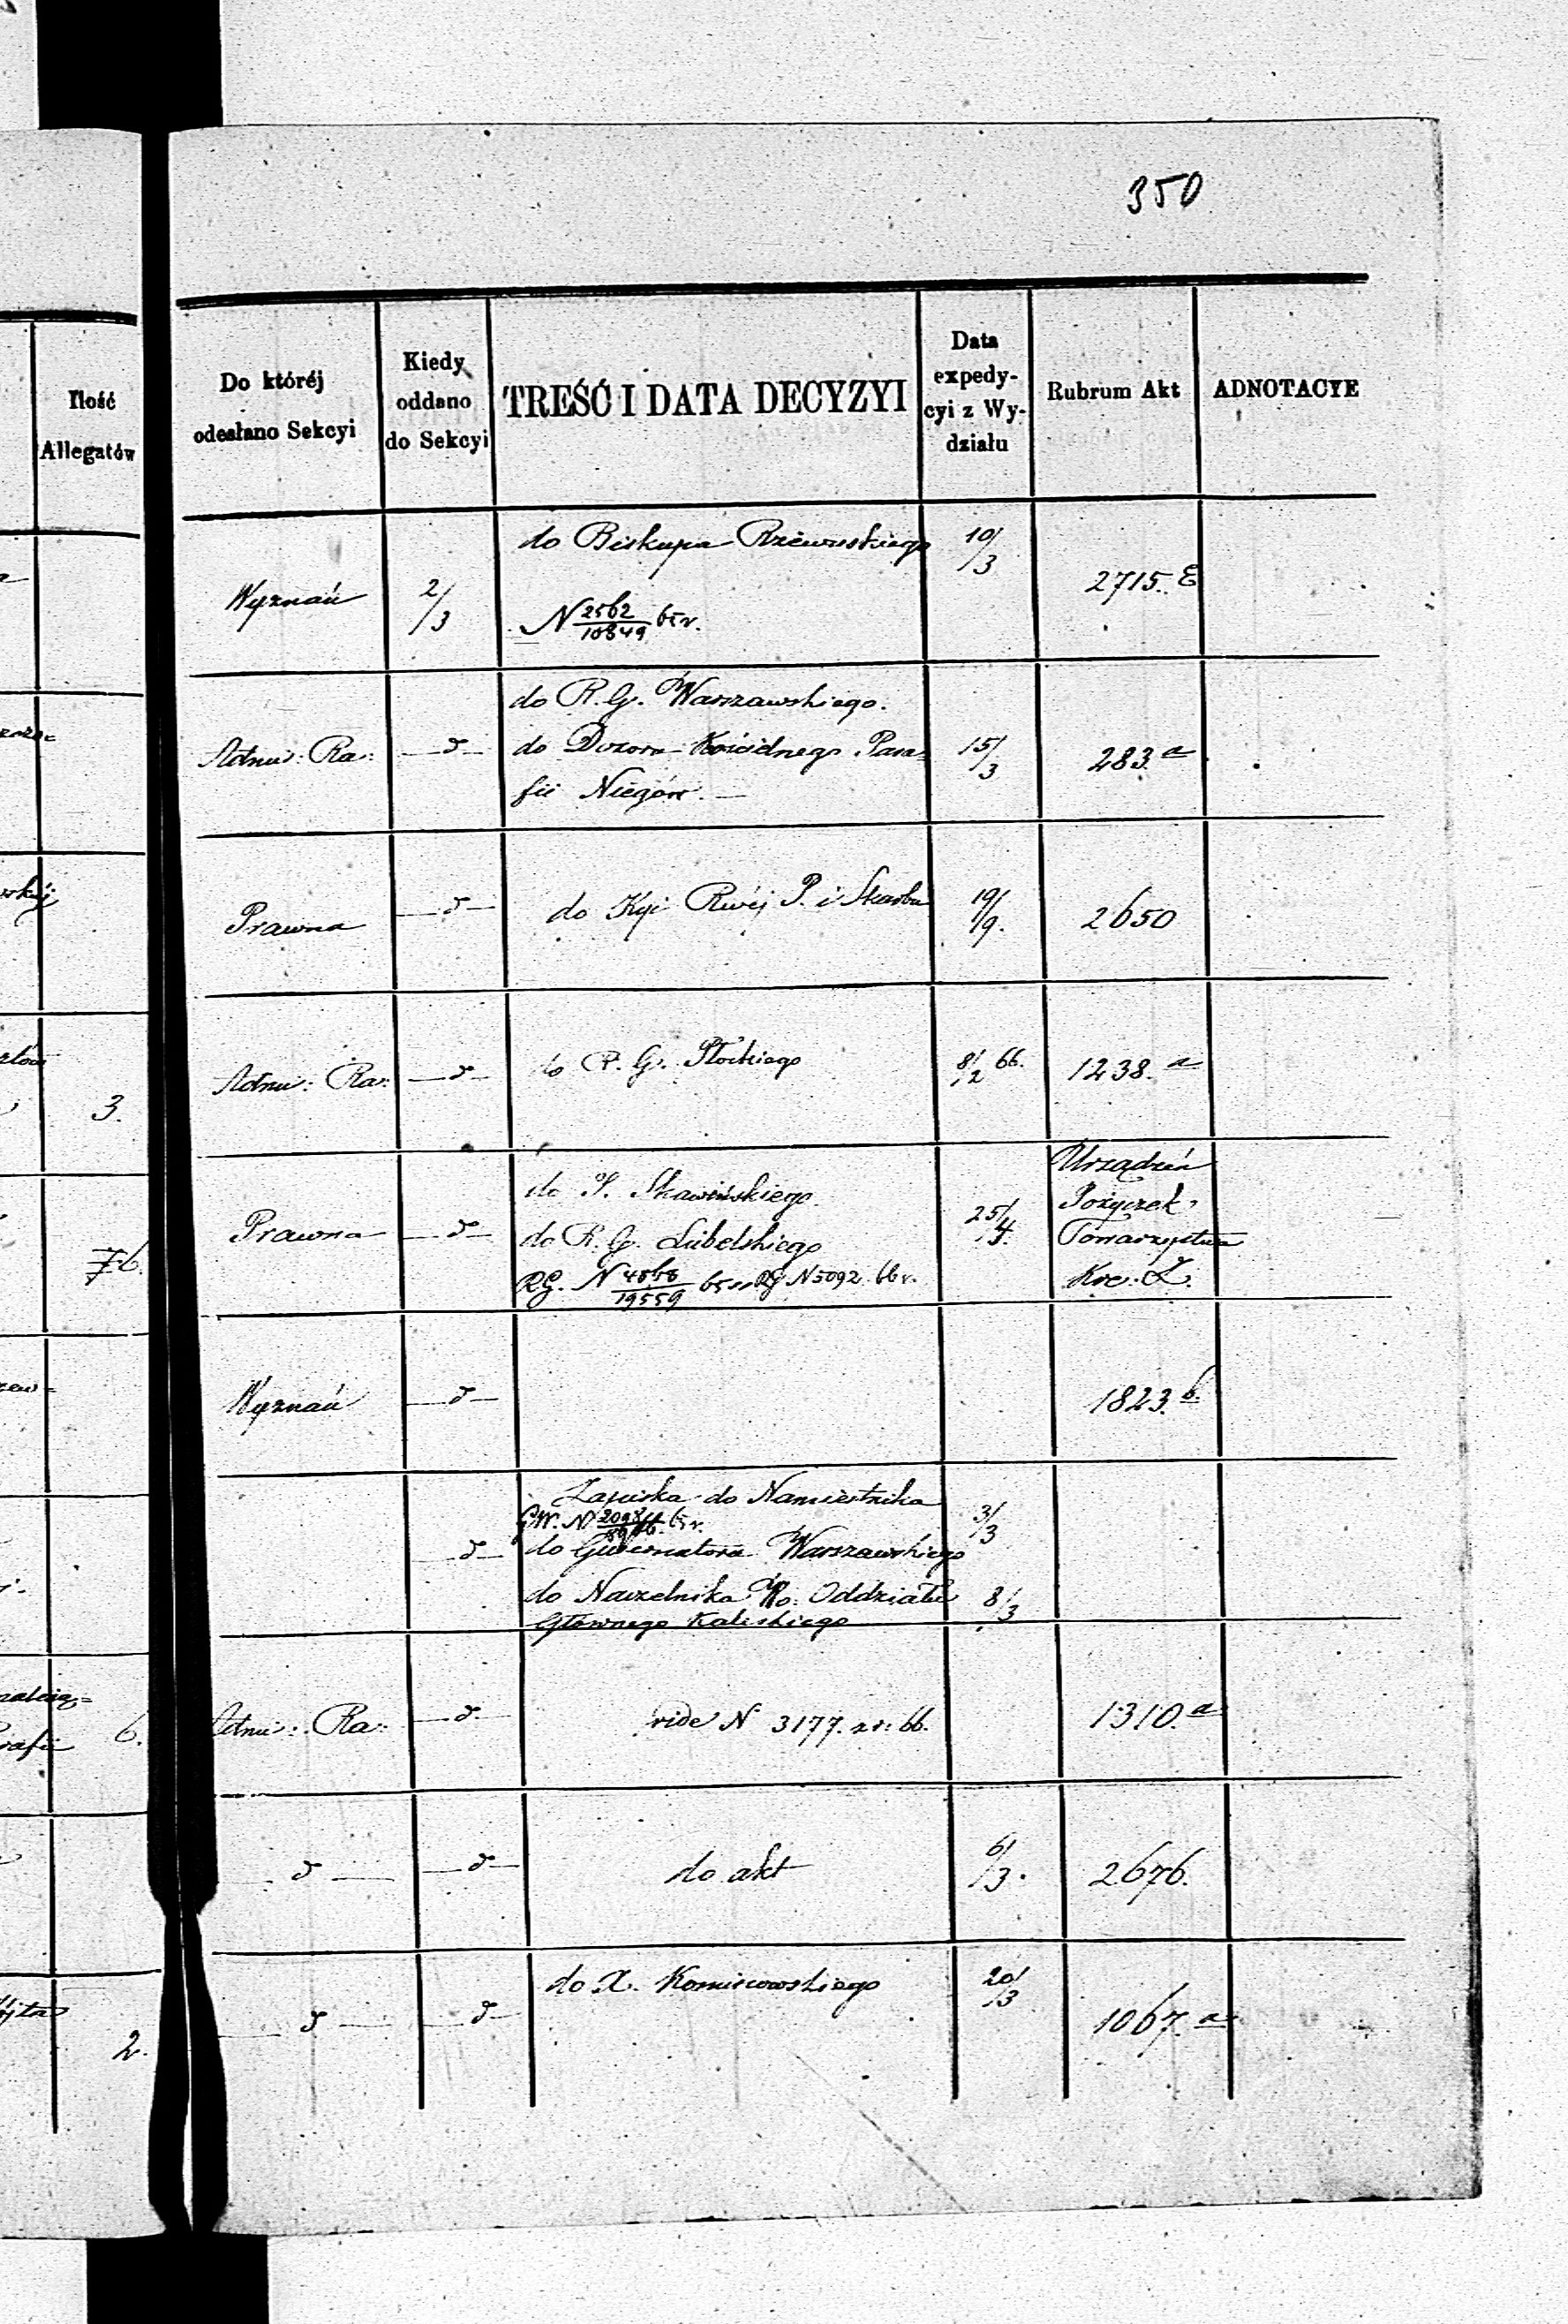 350
Ilość
Allegatów
Do któréj
odesłano Sekcyi
Kiedy
oddano
do Sekcyi
TREŚĆ I DATA DECYZYI
Data
expedy-
cyi z Wy-
działu
Rubrum Akt
ADNOTACYE
Wyznań
2/3
do Biskupa Rzewuskiego
N 2562/10849 65 r.
10/3
2715. E
Admi: Ra:
—d—
do R. G. Warszawskiego.
do Dozoru Kościelnego Para-
fii Niegów. —
15/3
283. a
Prawna
—d—
do Kyi Rwéj P. i Skarbu
19/9.
2650
3.
Admi: Ra:
—d—
do R. G. Płockiego
8/2 66.
1238. a
6.
Prawna
—d—
do P. Skawińskiego.
do R. G. Lubelskiego
RG. N 4868/19559 65 RG N 5092 66 r.
25/4.
Urządzeń
Pożyczek
Towarzystwa
Kre. Z.
Wyznań
—d—
1823. b.
—d—
Zapiska do Namiestnika
GW. N 65 r.
do Gubernatora Warszawskiego
do Naczelnika Wo: Oddziału
Głównego Kaliskiego
3/3
8/3
6.
Admi: Ra:
—d—
vide N 3177. z r: 66.
1310. a
—d—
—d—
do akt
6/3.
2676.
2.
—d—
—d—
do X.
20/3
1067. a